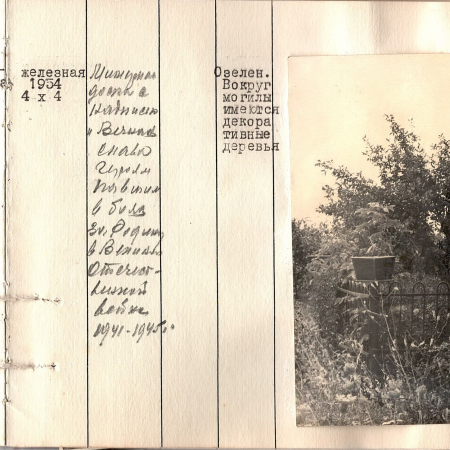 железная
1954
4 х 4
доска с
надписью
Вечная
слава
героям
павшим
в боях
за Родину
в Великой
Отечест-
венной
войне
1941-1945г.
Озелен.
Вокруг
могилы
имеются
декора
тивные
деревья